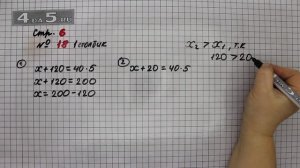 4DA5.RU
Стр. 6
№ 18 1 столбик
① x+120=40·5
x+120=200
x=200-120
② x+20=40·5
x₂ > x₁, т.к
120 > 20